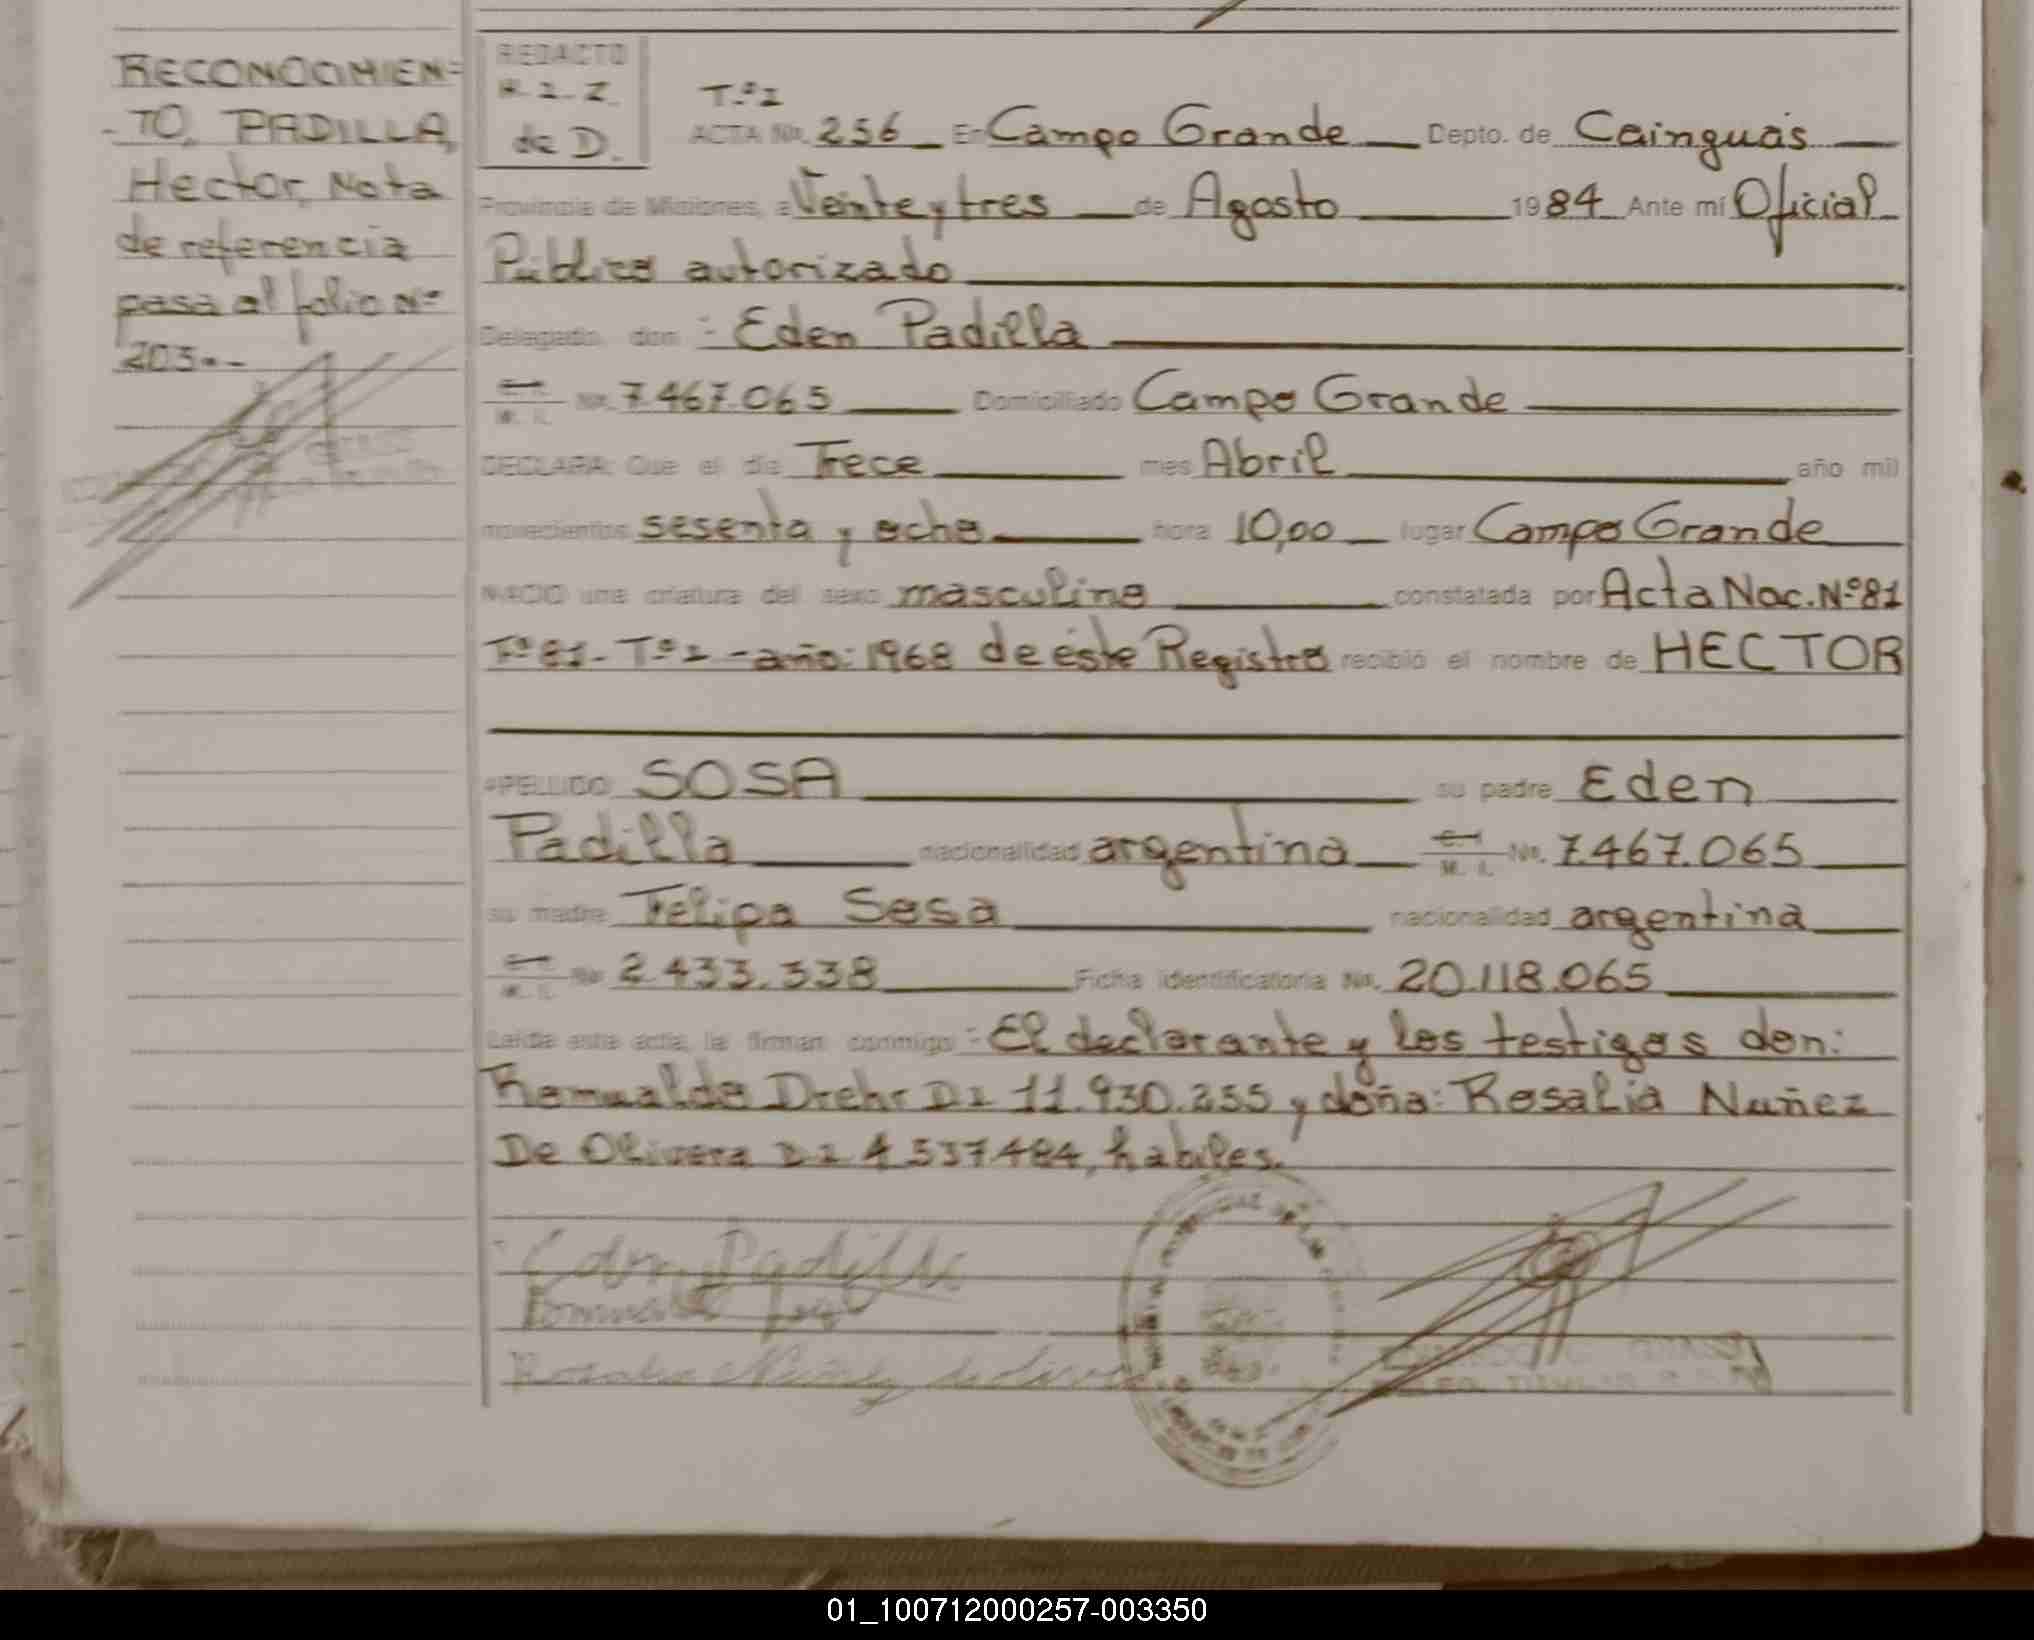 RECONOCIMIEN-
TO, PADILLA,
Hector, Nota
de referencia
pasa al folio Nº
203--
REDACTO
R.I.Z.
de D.
Tº2
ACTA No. 256 En Campo Grande Depto. de Cainguás
Provincia de Misiones, a Veinte y tres de Agosto 1984 Ante mi Oficial
Público autorizado
Delegado don :- Eden Padilla
M. I. No. 7.467.065 Domiciliado Campo Grande
DECLARA: Que el día Trece mes Abril año mil
novecientos sesenta y ocho hora 10,00 lugar Campo Grande
NACIO una criatura del sexo masculino constatada por Acta Nac. Nº 81
Fº 81- Tº 1 - año: 1968 de éste Registro recibió el nombre de HECTOR
APELLIDO SOSA su padre Eden
Padilla nacionalidad argentina M. I. No. 7.467.065
su madre Felipa Sosa nacionalidad argentina
M. I. No. 2.433.338 Ficha identificatoria No. 20.118.065
Leída esta acta, la firman conmigo :- El declarante y los testigos don:
Romualdo Drehr DI 11.930.255 y doña: Rosalia Nuñez
De Olivera DI 4.537.484, habiles.
Eden Padilla
01_100712000257-003350